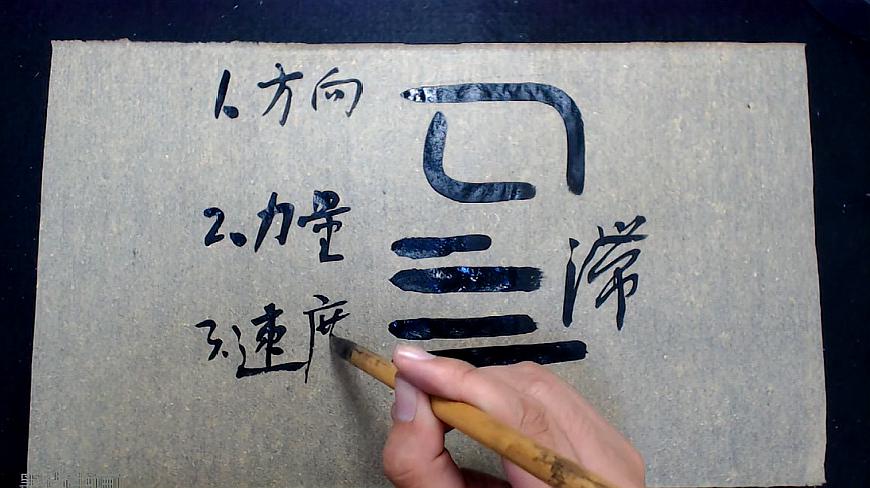 1.方向
2.力量
滞
3.速度